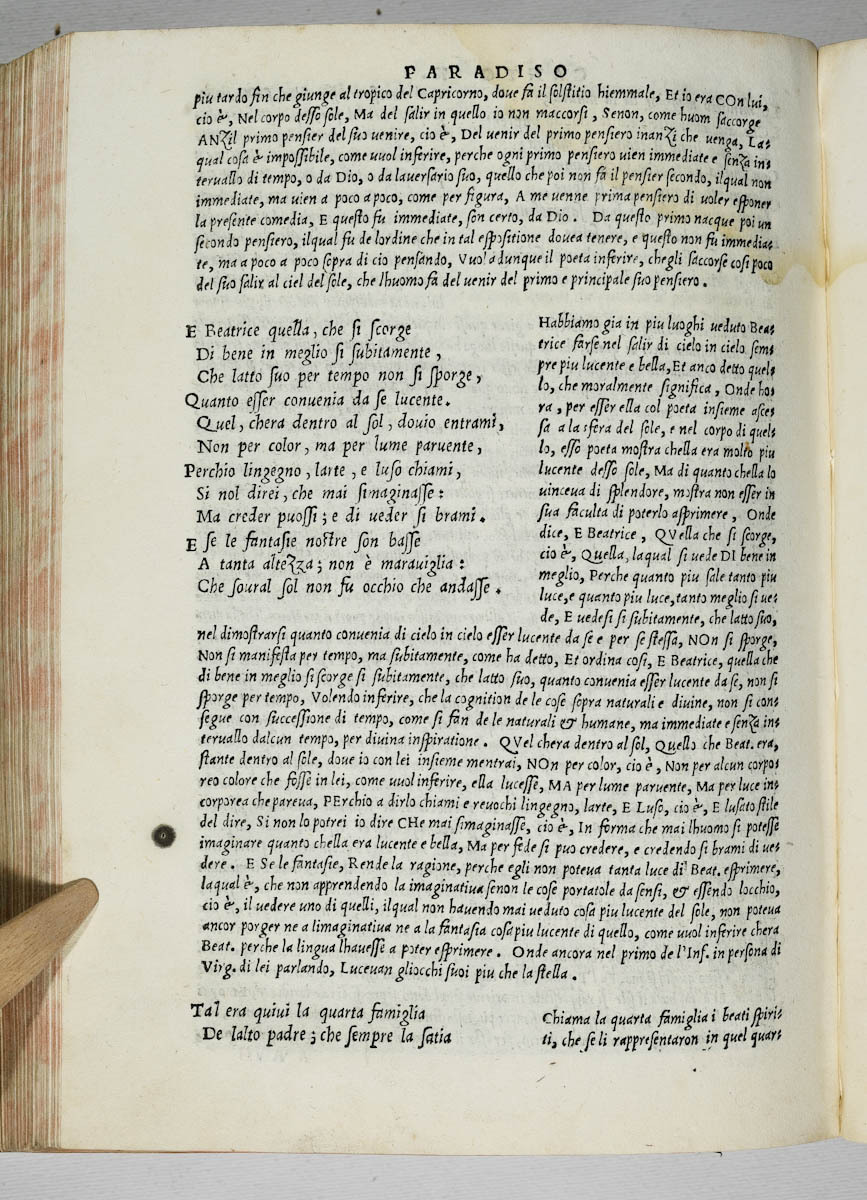 PARADISO
piu tardo fin che giunge al tropico del Capricorno, doue fa il solstitio hiemmale, Et io era COn lui,
cio è, Nel corpo desso sole, Ma del salir in quello io non maccorsi, Senon, come huom saccorge
ANZil primo pensier del suo uenire, cio è, Del uenir del primo pensiero inanzi che uenga, La-
qual cosa è impossibile, come uuol inferire, perche ogni primo pensiero uien immediate e senza in-
teruallo di tempo, o da Dio, o da lauersario suo, quello che poi non fa il pensier secondo, ilqual non
immediate, ma uien a poco a poco, come per figura, A me uenne prima pensiero di uoler esponer
la presente comedia, E questo fu immediate, son certo, da Dio. Da questo primo nacque poi un
secondo pensiero, ilqual fu de lordine che in tal espositione douea tenere, e questo non fu immedia-
te, ma a poco a poco sopra di cio pensando, Vuol adunque il poeta inferire, chegli saccorse cosi poco
del suo salir al ciel del sole, che lhuomo fa del uenir del primo e principale suo pensiero.
E Beatrice quella, che si scorge
Di bene in meglio si subitamente,
Che latto suo per tempo non si sporge,
Quanto esser conuenia da se lucente.
Quel, chera dentro al sol, douio entrami,
Non per color, ma per lume paruente,
Perchio lingegno, larte, e luso chiami,
Si nol direi, che mai simaginasse:
Ma creder puossi; e di ueder si brami.
E se le fantasie nostre son basse
A tanta altezza; non è marauiglia:
Che soural sol non fu occhio che andasse.
Habbiamo gia in piu luoghi ueduto Bea-
trice farse nel salir di cielo in cielo sem-
pre piu lucente e bella, Et anco detto quel-
lo, che moralmente significa, Onde ho-
ra, per esser ella col poeta insieme asce-
sa a la sfera del sole, e nel corpo di quel-
lo, esso poeta mostra chella era molto piu
lucente desso sole, Ma di quanto chella lo
uinceua di splendore, mostra non esser in
sua faculta di poterlo asprimere, Onde
dice, E Beatrice, QVella che si scorge,
cio è, Quella, laqual si uede DI bene in
meglio, Perche quanto piu sale tanto piu
luce, e quanto piu luce, tanto meglio si ue-
de, E uedesi si subitamente, che latto suo,
nel dimostrarsi quanto conuenia di cielo in cielo esser lucente da se e per se stessa, NOn si sporge,
Non si manifesta per tempo, ma subitamente, come ha detto, Et ordina cosi, E Beatrice, quella che
di bene in meglio si scorge si subitamente, che latto suo, quanto conuenia esser lucente da se, non si
sporge per tempo, Volendo inferire, che la cognition de le cose sopra naturali e diuine, non si con-
segue con successione di tempo, come si fan de le naturali & humane, ma immediate e senza in-
teruallo dalcun tempo, per diuina inspiratione. QVel chera dentro al sol, Quello che Beat. era,
stante dentro al sole, doue io con lei insieme mentrai, NOn per color, cio è, Non per alcun corpo-
reo colore che fosse in lei, come uuol inferire, ella lucesse, MA per lume paruente, Ma per luce in-
corporea che pareua, PErchio a dirlo chiami e reuochi lingegno, larte, E Luso, cio è, E lusato stile
del dire, Si non lo potrei io dire CHe mai simaginasse, cio è, In forma che mai lhuomo si potesse
imaginare quanto chella era lucente e bella, Ma per fede si puo credere, e credendo si brami di ue-
dere. E Se le fantasie, Rende la ragione, perche egli non poteua tanta luce di Beat. esprimere,
laqual è, che non apprendendo la imaginatiua senon le cose portatole da sensi, & essendo locchio,
cio è, il uedere uno di quelli, ilqual non hauendo mai ueduto cosa piu lucente del sole, non poteua
ancor porger ne a limaginatiua ne a la fantasia cosa piu lucente di quello, come uuol inferire chera
Beat. perche la lingua lhauesse a poter esprimere. Onde ancora nel primo de l'Inf. in persona di
Virg. di lei parlando, Luceuan gliocchi suoi piu che la stella.
Tal era quiui la quarta famiglia
De lalto padre; che sempre la satia
Chiama la quarta famiglia i beati spiri-
ti, che se li rappresentaron in quel quar-